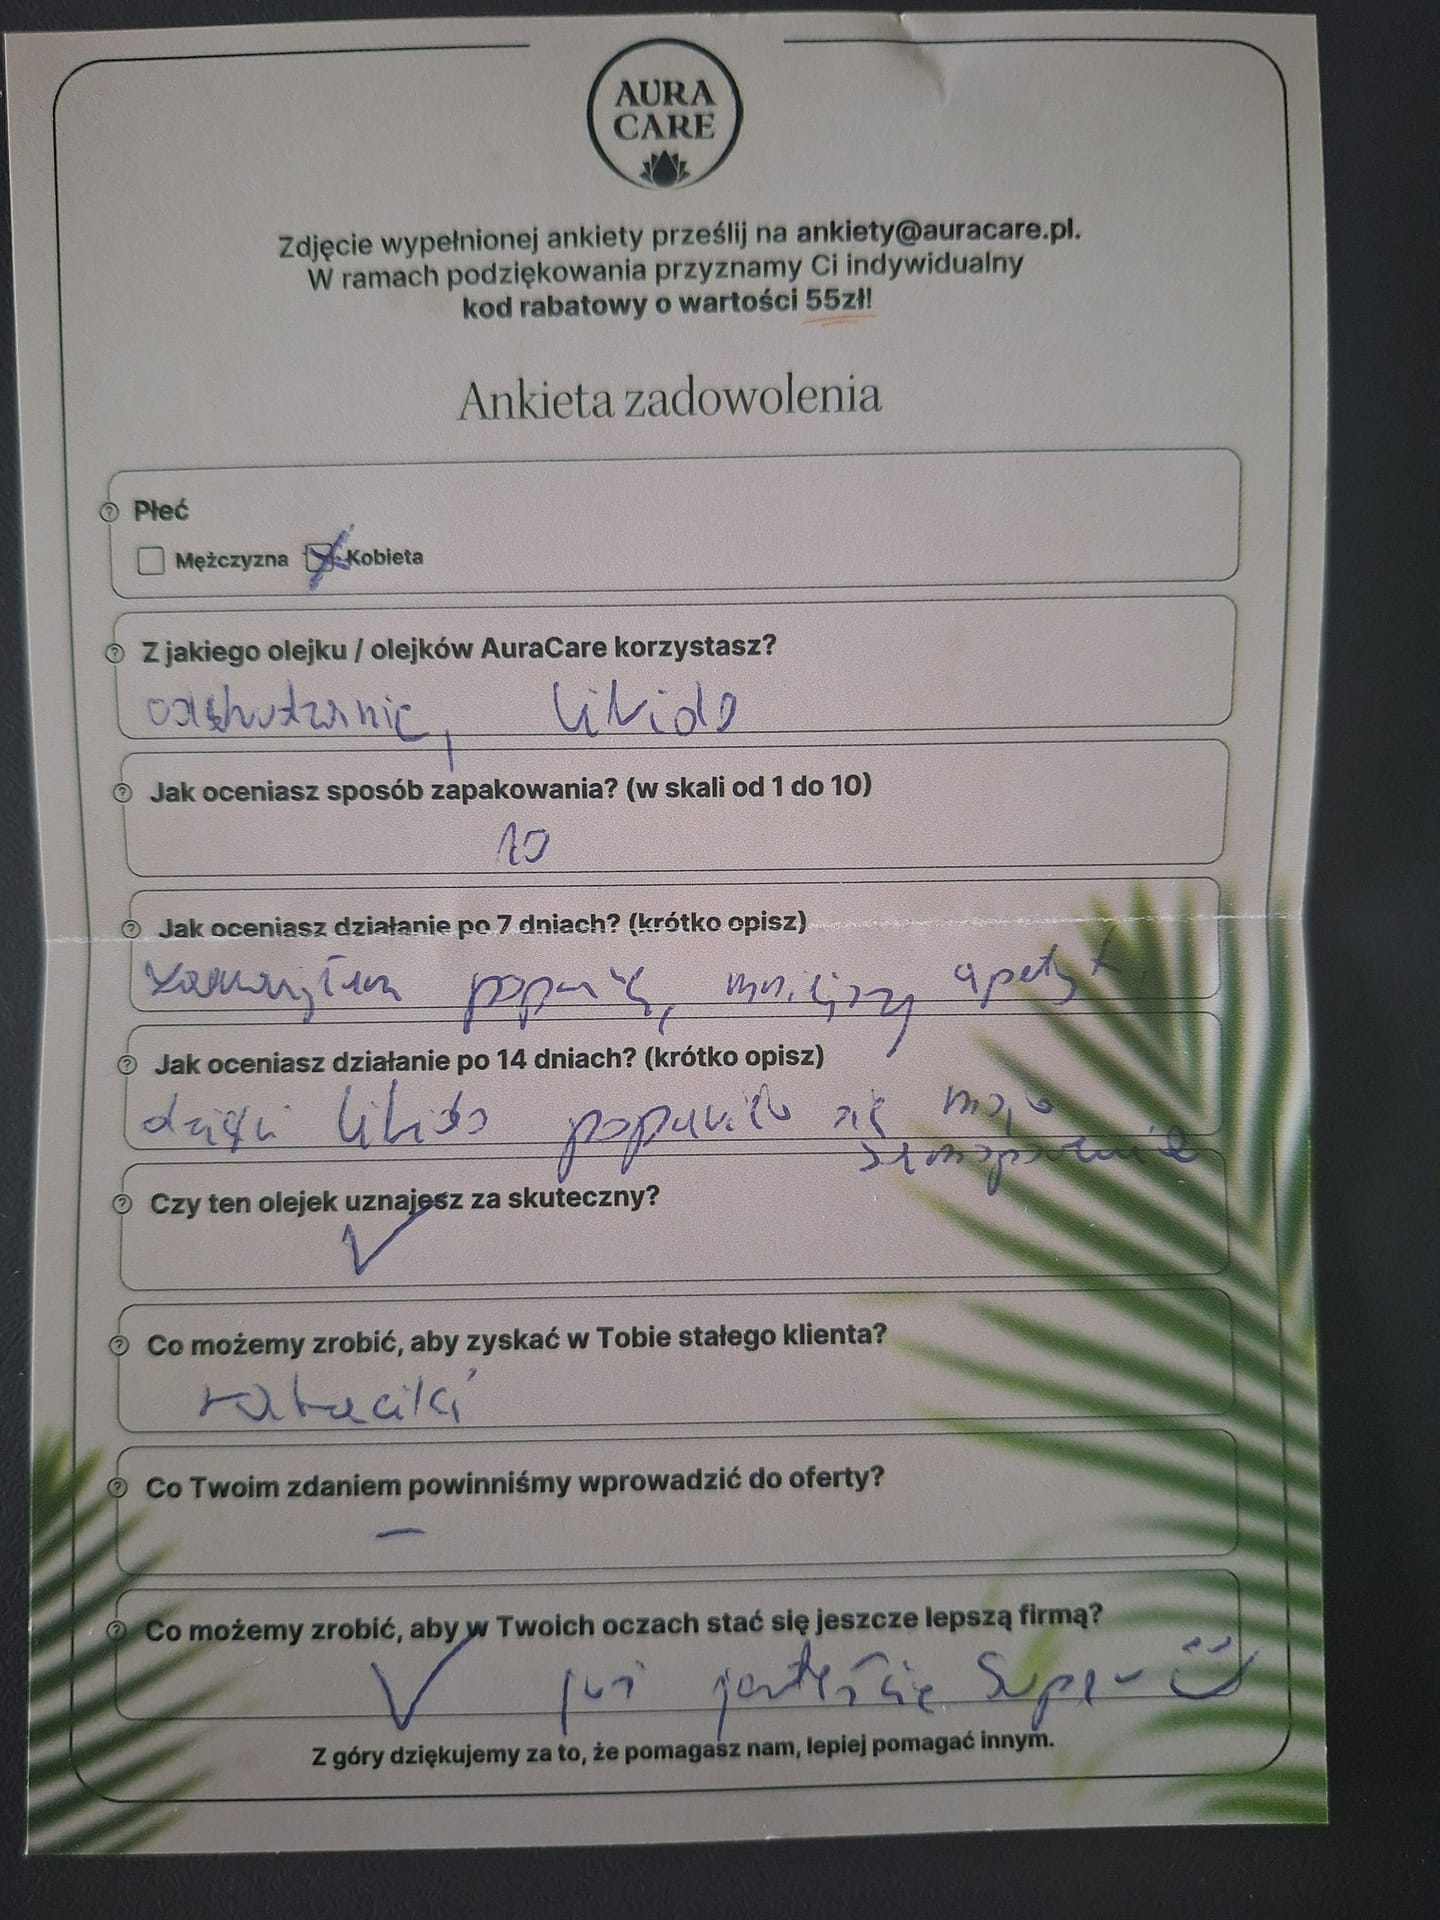 AURA
CARE
Zdjęcie wypełnionej ankiety prześlij na ankiety@auracare.pl.
W ramach podziękowania przyznamy Ci indywidualny
kod rabatowy o wartości 55zł!
Ankieta zadowolenia
Płeć
Mężczyzna Kobieta
Z jakiego olejku / olejków AuraCare korzystasz?
odchudzanie, libido
Jak oceniasz sposób zapakowania? (w skali od 1 do 10)
10
Jak oceniasz działanie po 7 dniach? (krótko opisz)
zauważyłam poprawę, mniejszy apetyt
Jak oceniasz działanie po 14 dniach? (krótko opisz)
dzięki libido poprawiło się moje
samopoczucie
Czy ten olejek uznajesz za skuteczny?
✓
Co możemy zrobić, aby zyskać w Tobie stałego klienta?
rabaciki
Co Twoim zdaniem powinniśmy wprowadzić do oferty?
–
Co możemy zrobić, aby w Twoich oczach stać się jeszcze lepszą firmą?
✓ już jesteście super
Z góry dziękujemy za to, że pomagasz nam, lepiej pomagać innym.